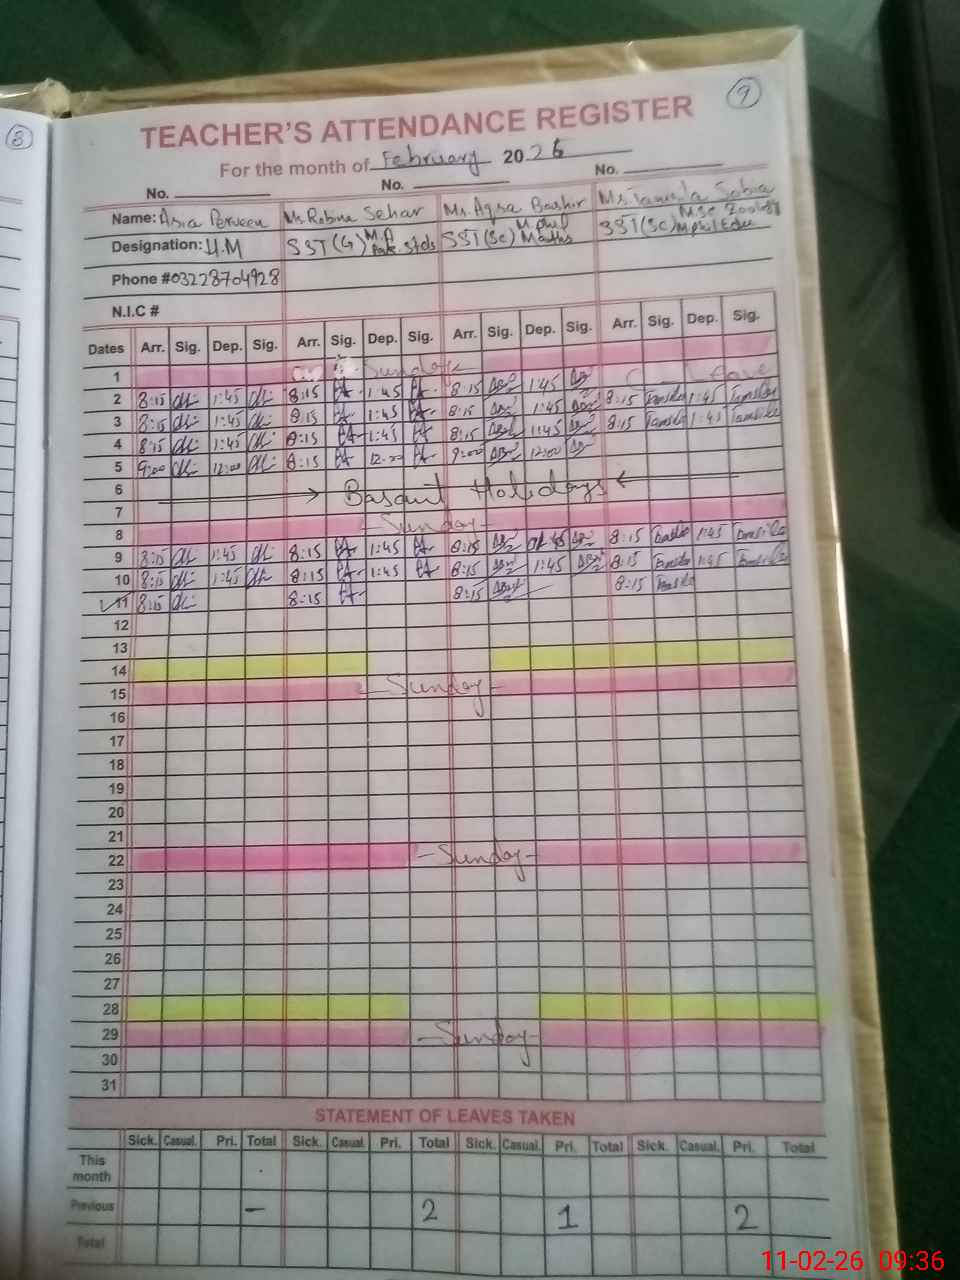 8
9
TEACHER'S ATTENDANCE REGISTER
For the month of February 2026
No. No. No.
Name: Asia Perveen Ms. Robina Sehar Ms. Aqsa Bashir
Designation: H.M SST (G) M.A Pak. Stds SST (Sc) M.phil Maths SST (Sc) M.Sc Zoology M.phil Edu
Phone #03228704928
N.I.C #
Dates Arr. Sig. Dep. Sig. Arr. Sig. Dep. Sig. Arr. Sig. Dep. Sig. Arr. Sig. Dep. Sig.
1 Sunday
2 8:15 1:45 8:15 1:45 8:15 1:45 Leave
3 8:15 1:45 8:15 1:45 8:15 1:45 8:15 1:45
4 8:15 1:45 8:15 1:45 8:15 1:45 8:15 1:45
5 9:00 12:00 8:15 12:00 9:00 12:00
6
7 Basant Holidays
8 Sunday
9 8:15 1:45 8:15 1:45 8:15 1:45 8:15 1:45
10 8:15 1:45 8:15 1:45 8:15 1:45 8:15 1:45
11 8:15 8:15 8:15 8:15
12
13
14
15 Sunday
16
17
18
19
20
21
22 Sunday
23
24
25
26
27
28
29 Sunday
30
31
STATEMENT OF LEAVES TAKEN
Sick. Casual. Pri. Total Sick. Casual. Pri. Total Sick. Casual. Pri. Total Sick. Casual. Pri. Total
This month
Previous – 2 1 2
Total
11-02-26 09:36